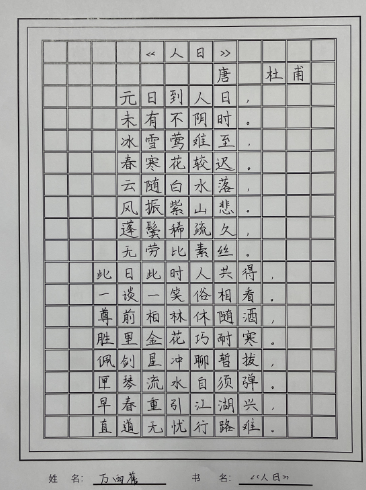 《人日》
唐 杜甫
元日到人日，
未有不阴时。
冰雪莺难至，
春寒花较迟。
云随白水落，
风振紫山悲。
蓬鬓稀疏久，
无劳比素丝。
此日此时人共得，
一谈一笑俗相看。
尊前柏林休随酒，
胜里金花巧耐寒。
佩剑星冲聊暂拔，
匣琴流水自须弹。
早春重引江湖兴，
直道无忧行路难。
姓 名： 万 书 名：《人日》